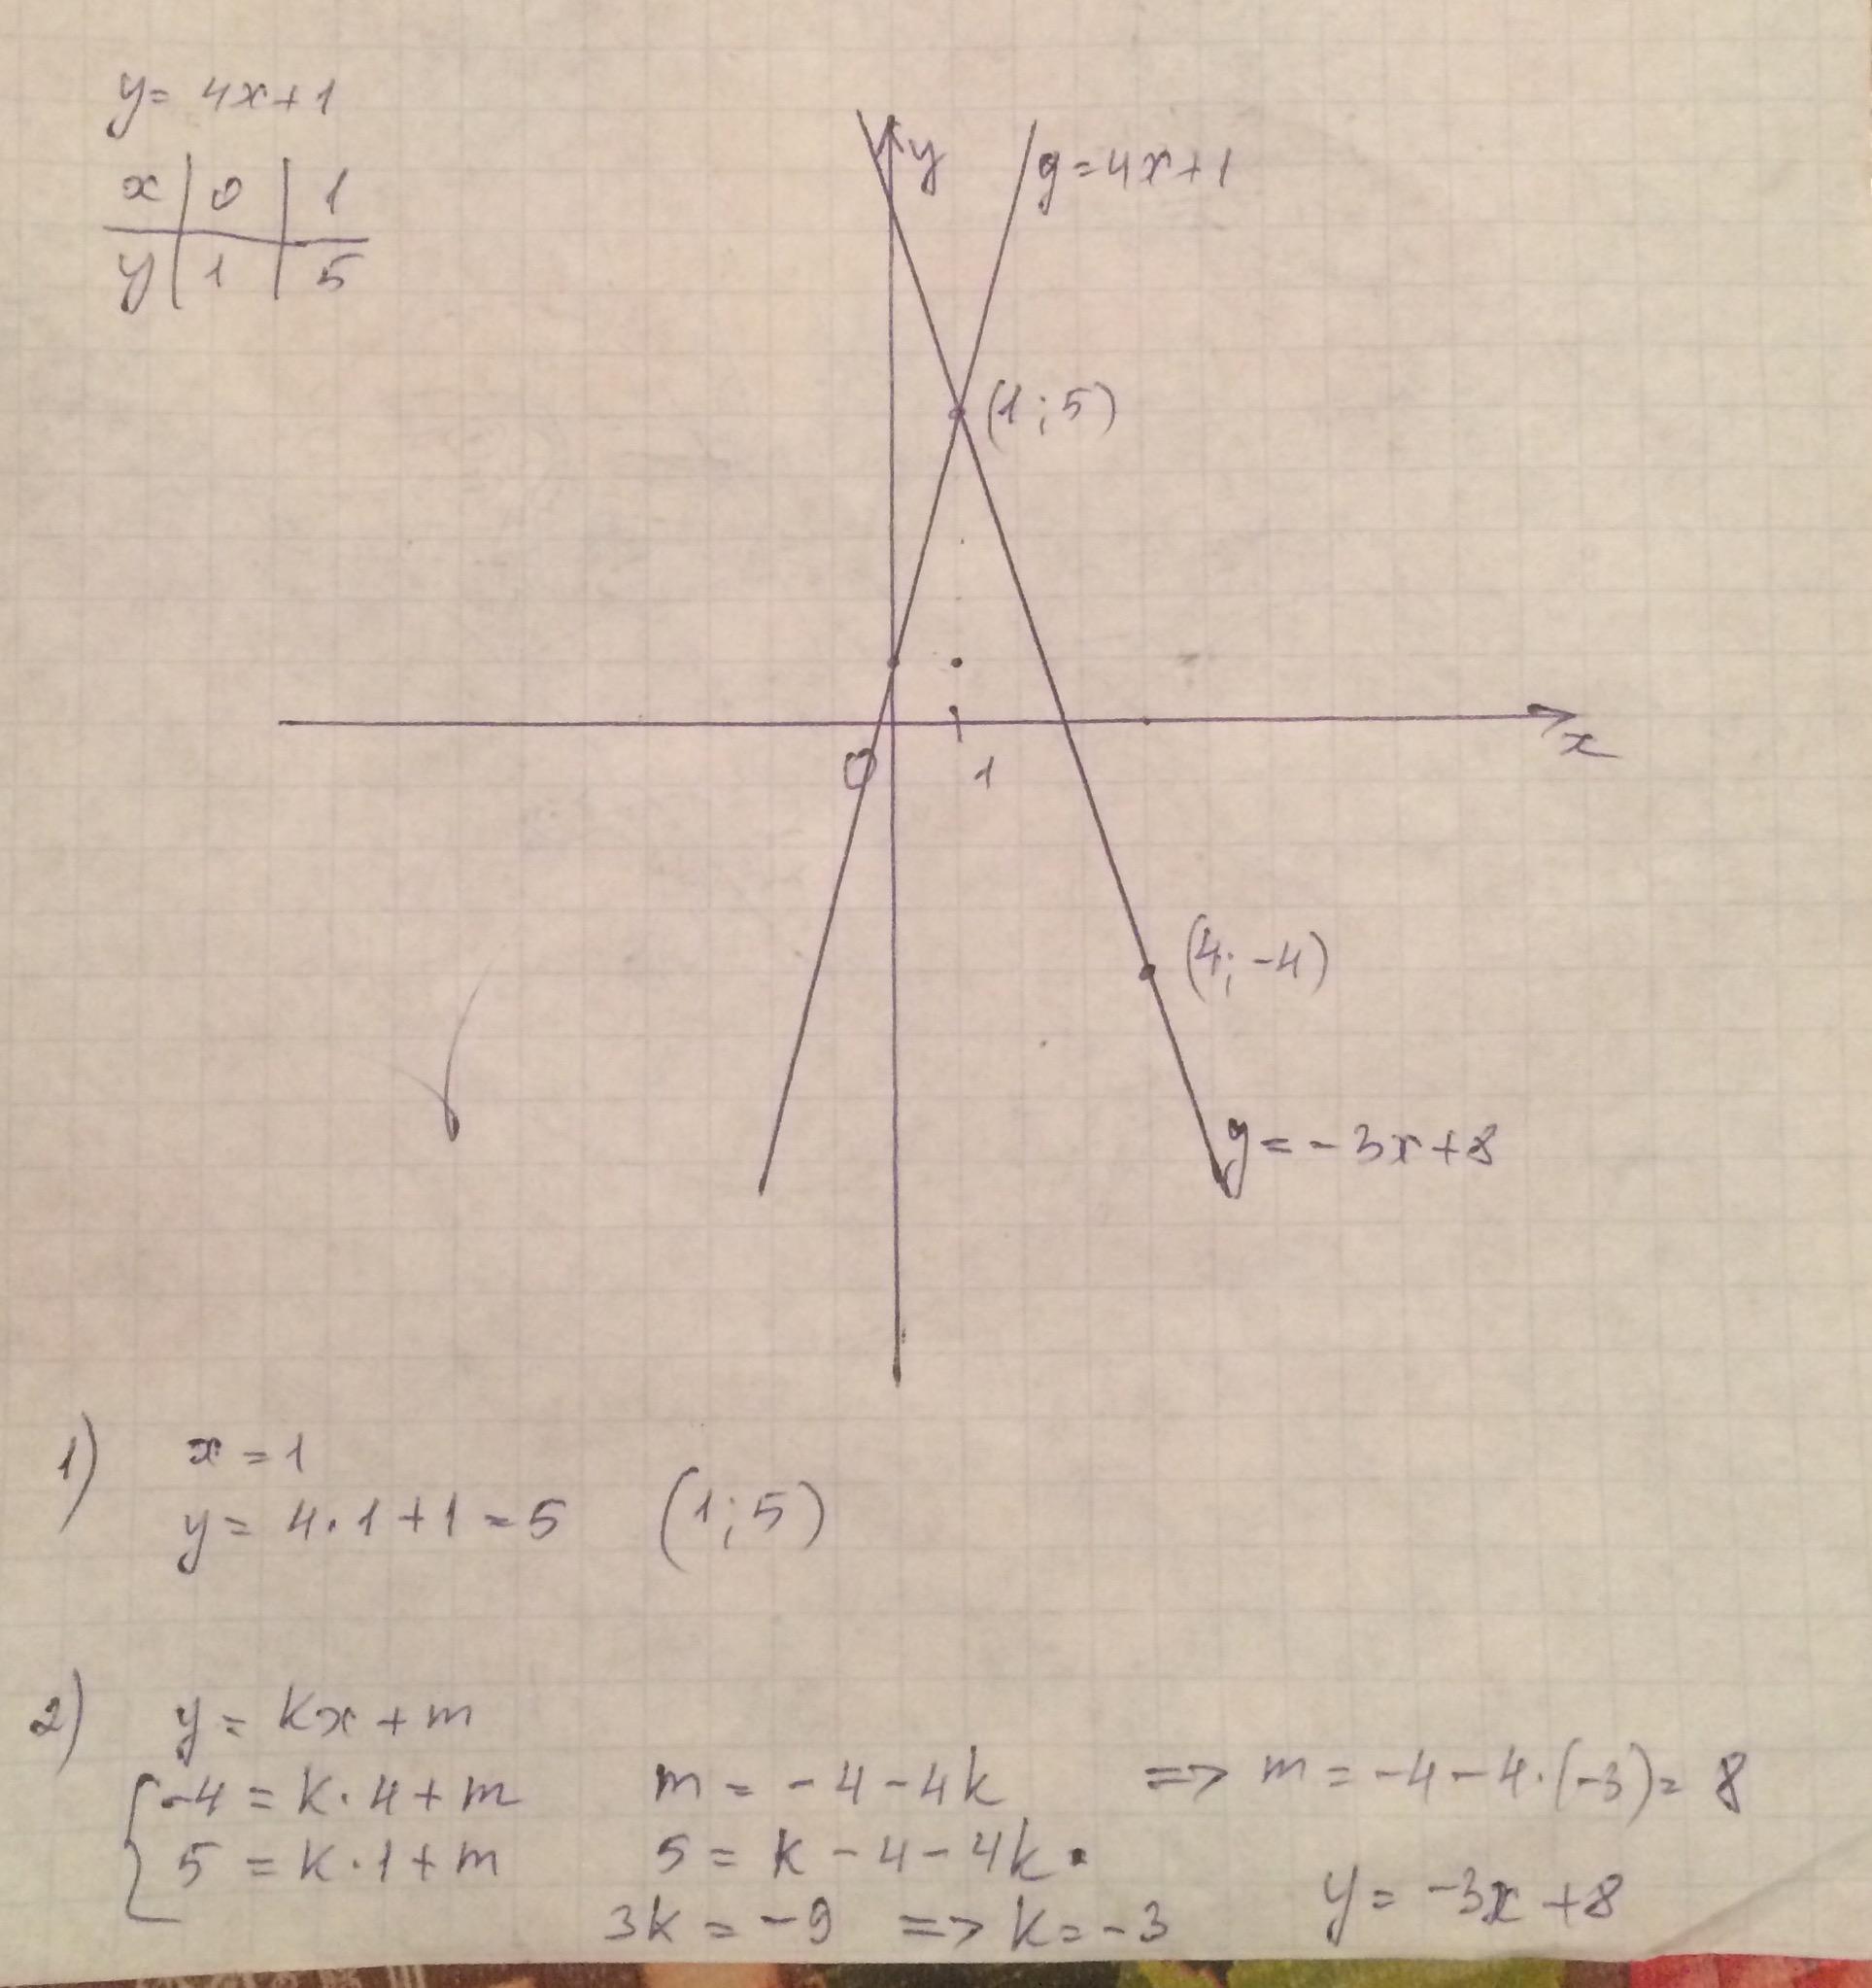 y = 4x+1
x | 0 | 1
y | 1 | 5
y
y = 4x+1
(1; 5)
0
1
x
(4; -4)
y = -3x+8
1) x = 1
y = 4·1+1 = 5 (1; 5)
2) y = kx+m
-4 = k·4+m m = -4-4k => m = -4-4·(-3) = 8
5 = k·1+m 5 = k-4-4k
3k = -9 => k = -3 y = -3x+8